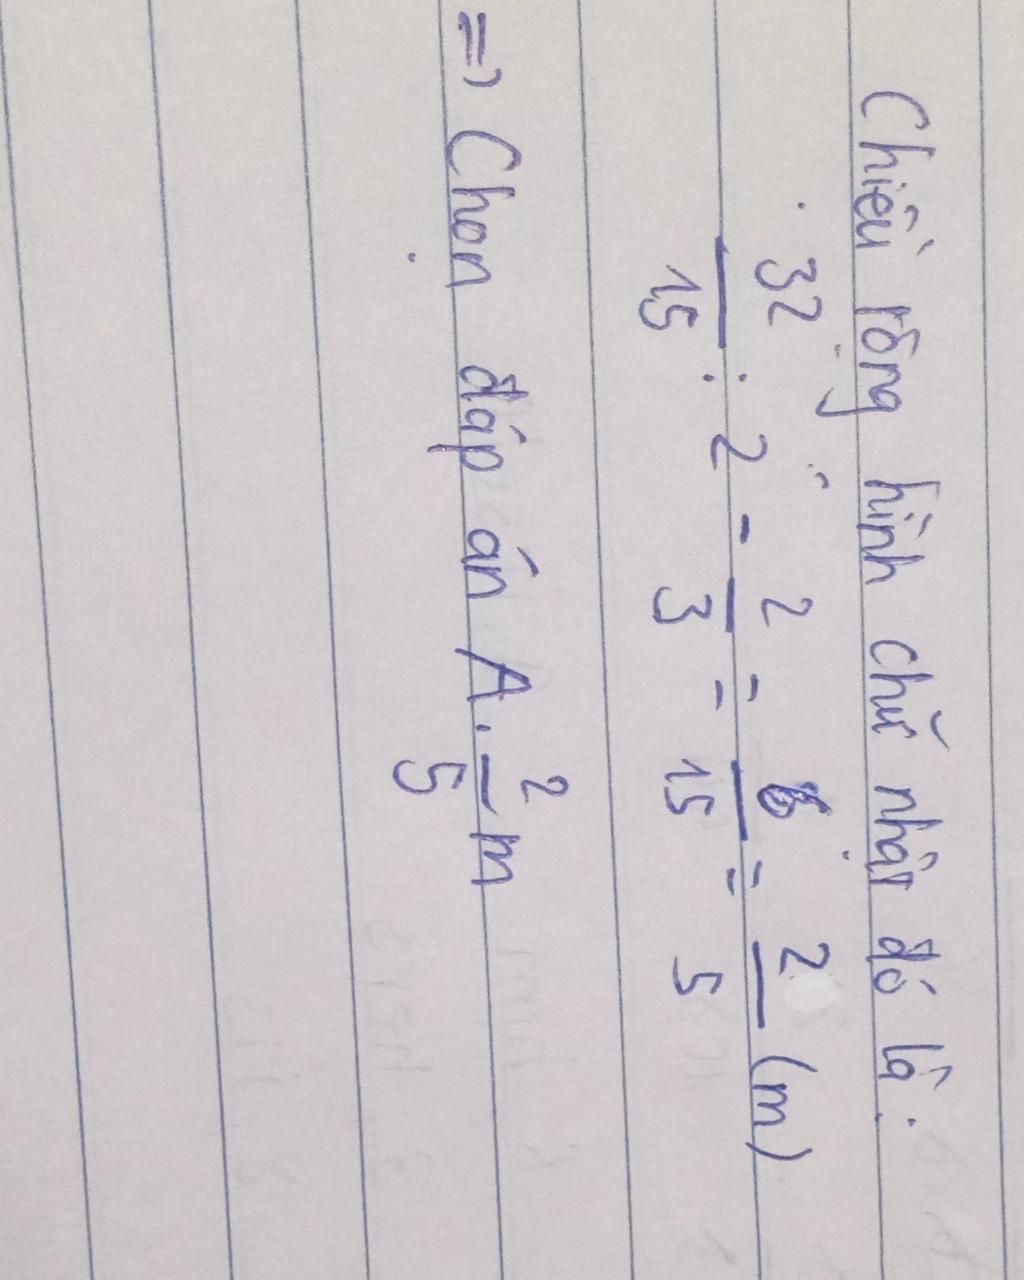 Chiều rộng hình chữ nhật đó là:
32/15 : 2 - 2/3 = 6/15 = 2/5 (m)
=> Chọn đáp án A. 2/5 m